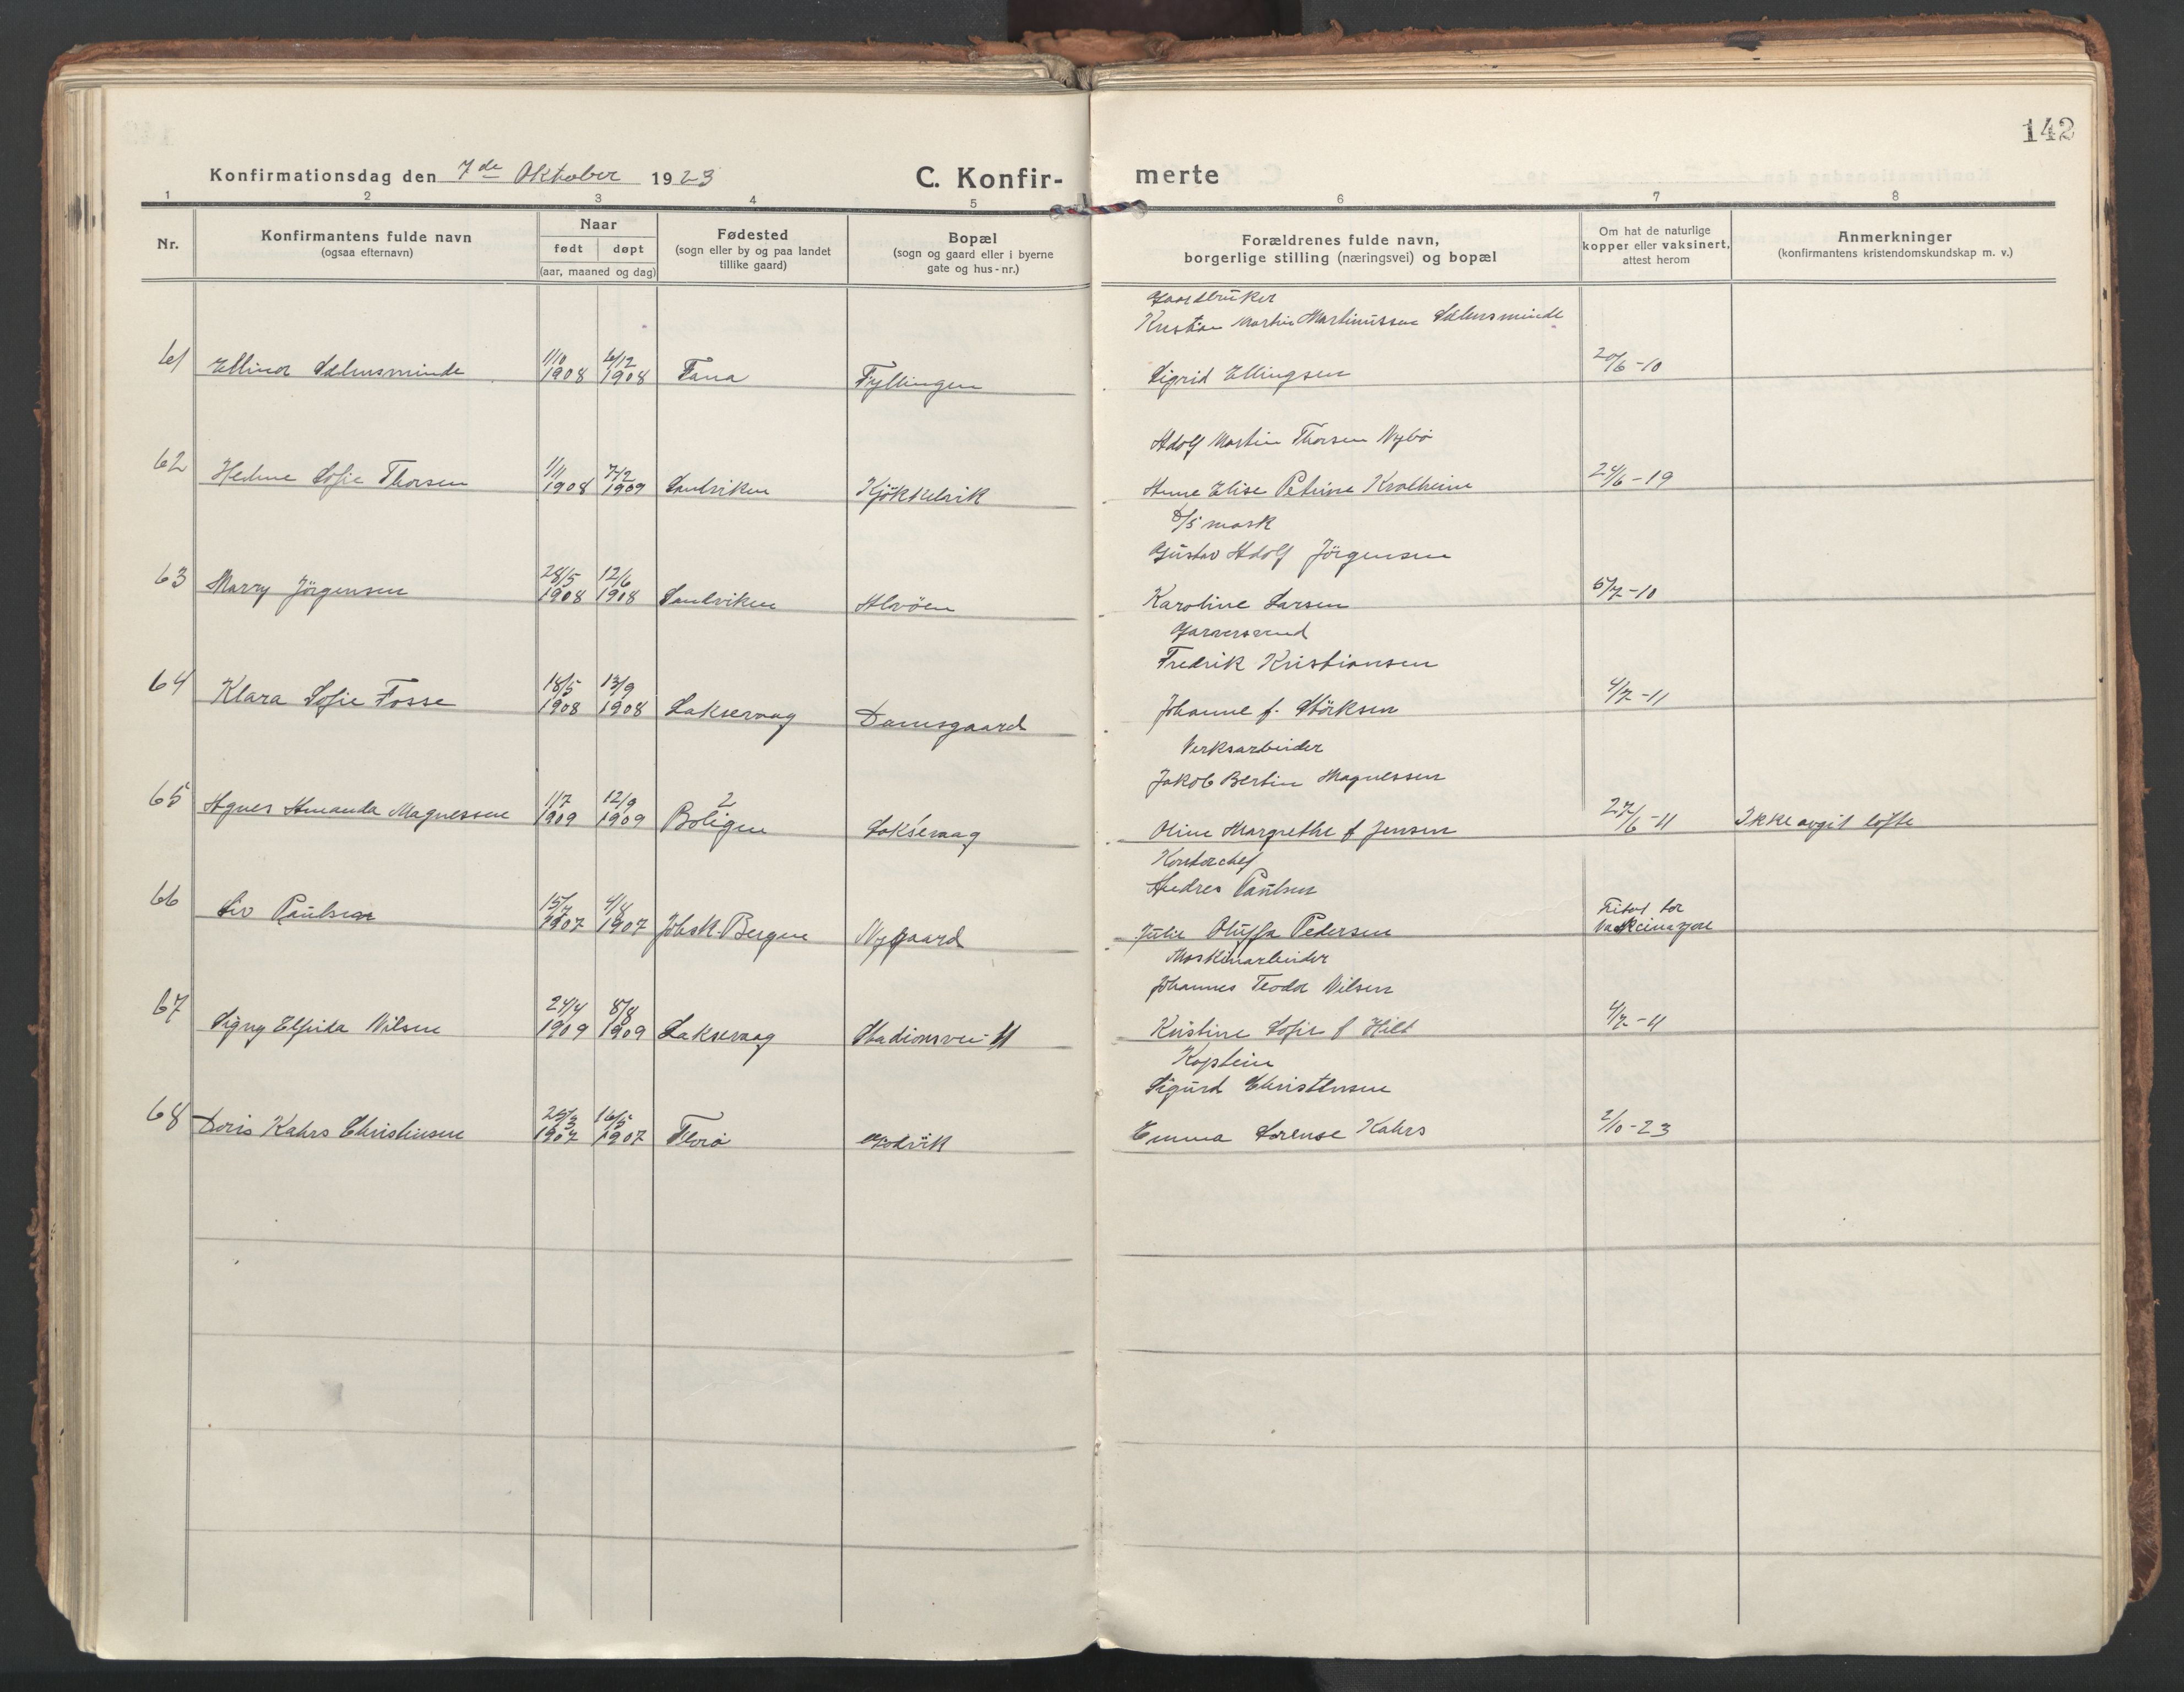 142
Konfirmationsdag den 7de Oktober 1923
C. Konfir-merte
1 2 3 4 5 6 7 8
Nr.
Konfirmantens fulde navn
(ogsaa efternavn)
Naar
født døpt
(aar, maaned og dag)
Fødested
(sogn eller by og paa landet
tillike gaard)
Bopæl
(sogn og gaard eller i byerne
gate og hus-nr.)
Forældrenes fulde navn,
borgerlige stilling (næringsvei) og bopæl
Om hat de naturlige
kopper eller vaksinert,
attest herom
Anmerkninger
(konfirmantens kristendomskundskap m. v.)
Gaardbruker
Kristian Martin Martinussen Sælensminde
61 Ellinor Sælensminde 1/10 1908 6/12 1908 Fana Fyllingen Sigrid Ellingsen 20/6-10
Adolf Martin Thorsen Nybö
62 Sofie Thorsen 1/11 1908 7/2 1909 Sandviken Kjökkelvik Anne Elise Petrine 24/6-19
Gustav Adolf Jörgensen
63 Marry Jörgensen 28/5 1908 12/6 1908 Sandviken Alvöen Karoline Larsen 5/7-10
Garversvend
Fredrik Kristiansen
64 Klara Sofie Fosse 18/5 1908 13/9 1908 Laksevaag Damsgaard Johanne f. Störksen 4/7-11
Verksarbeider
Jakob Bertin Magnessen
65 Agnes Amanda Magnessen 1/7 1909 12/9 1909 2 Boligen Laksevaag Oline Margrethe f Jensen 27/6-11 Ikke avgit löfte
Kontorchef
Andreas Paulsen
66 Liv Paulsen 15/7 1907 4/8 1907 Johsk. Bergen Nygaard Julie Oluffa Pedersen Fritat for vakcinasjon
Maskinarbeider
Johannes Teodor Nilsen
67 Signy Elfrida Nilsen 24/4 1909 8/8 1909 Laksevaag Stadionsvei 11 Kristine Sofie f Hilt 4/7-11
Kaptein
Sigurd Christensen
68 Doris Kahrs Christensen 25/3 1907 16/5 1907 Florö Godvik Emma Lorense Kahrs 2/10-23